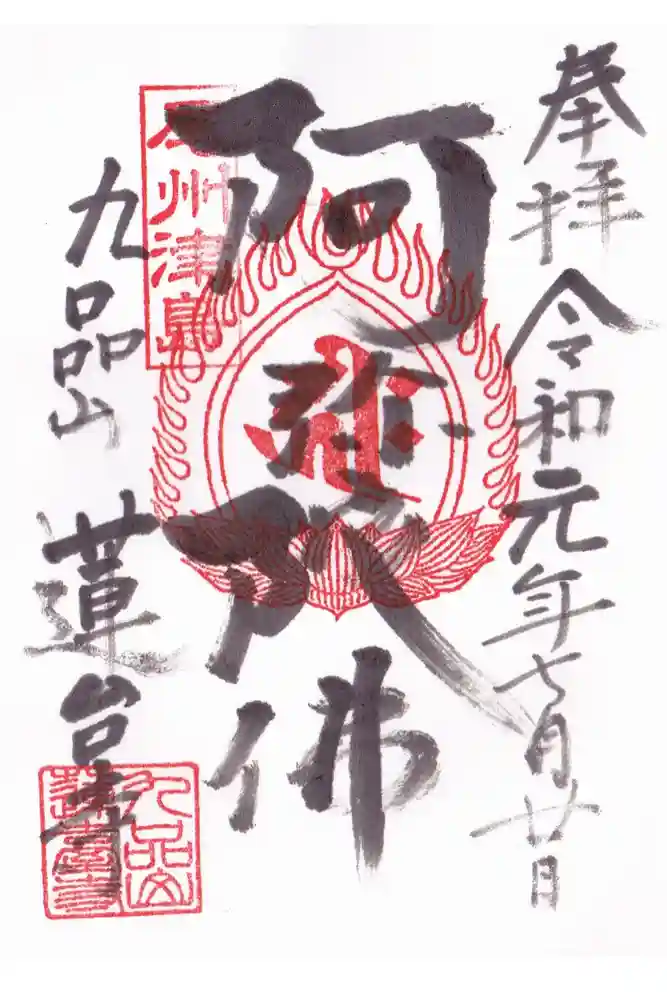 奉拝 令和元年七月廿日
尾州津島
阿弥陀佛
九品山 蓮台寺
九品山